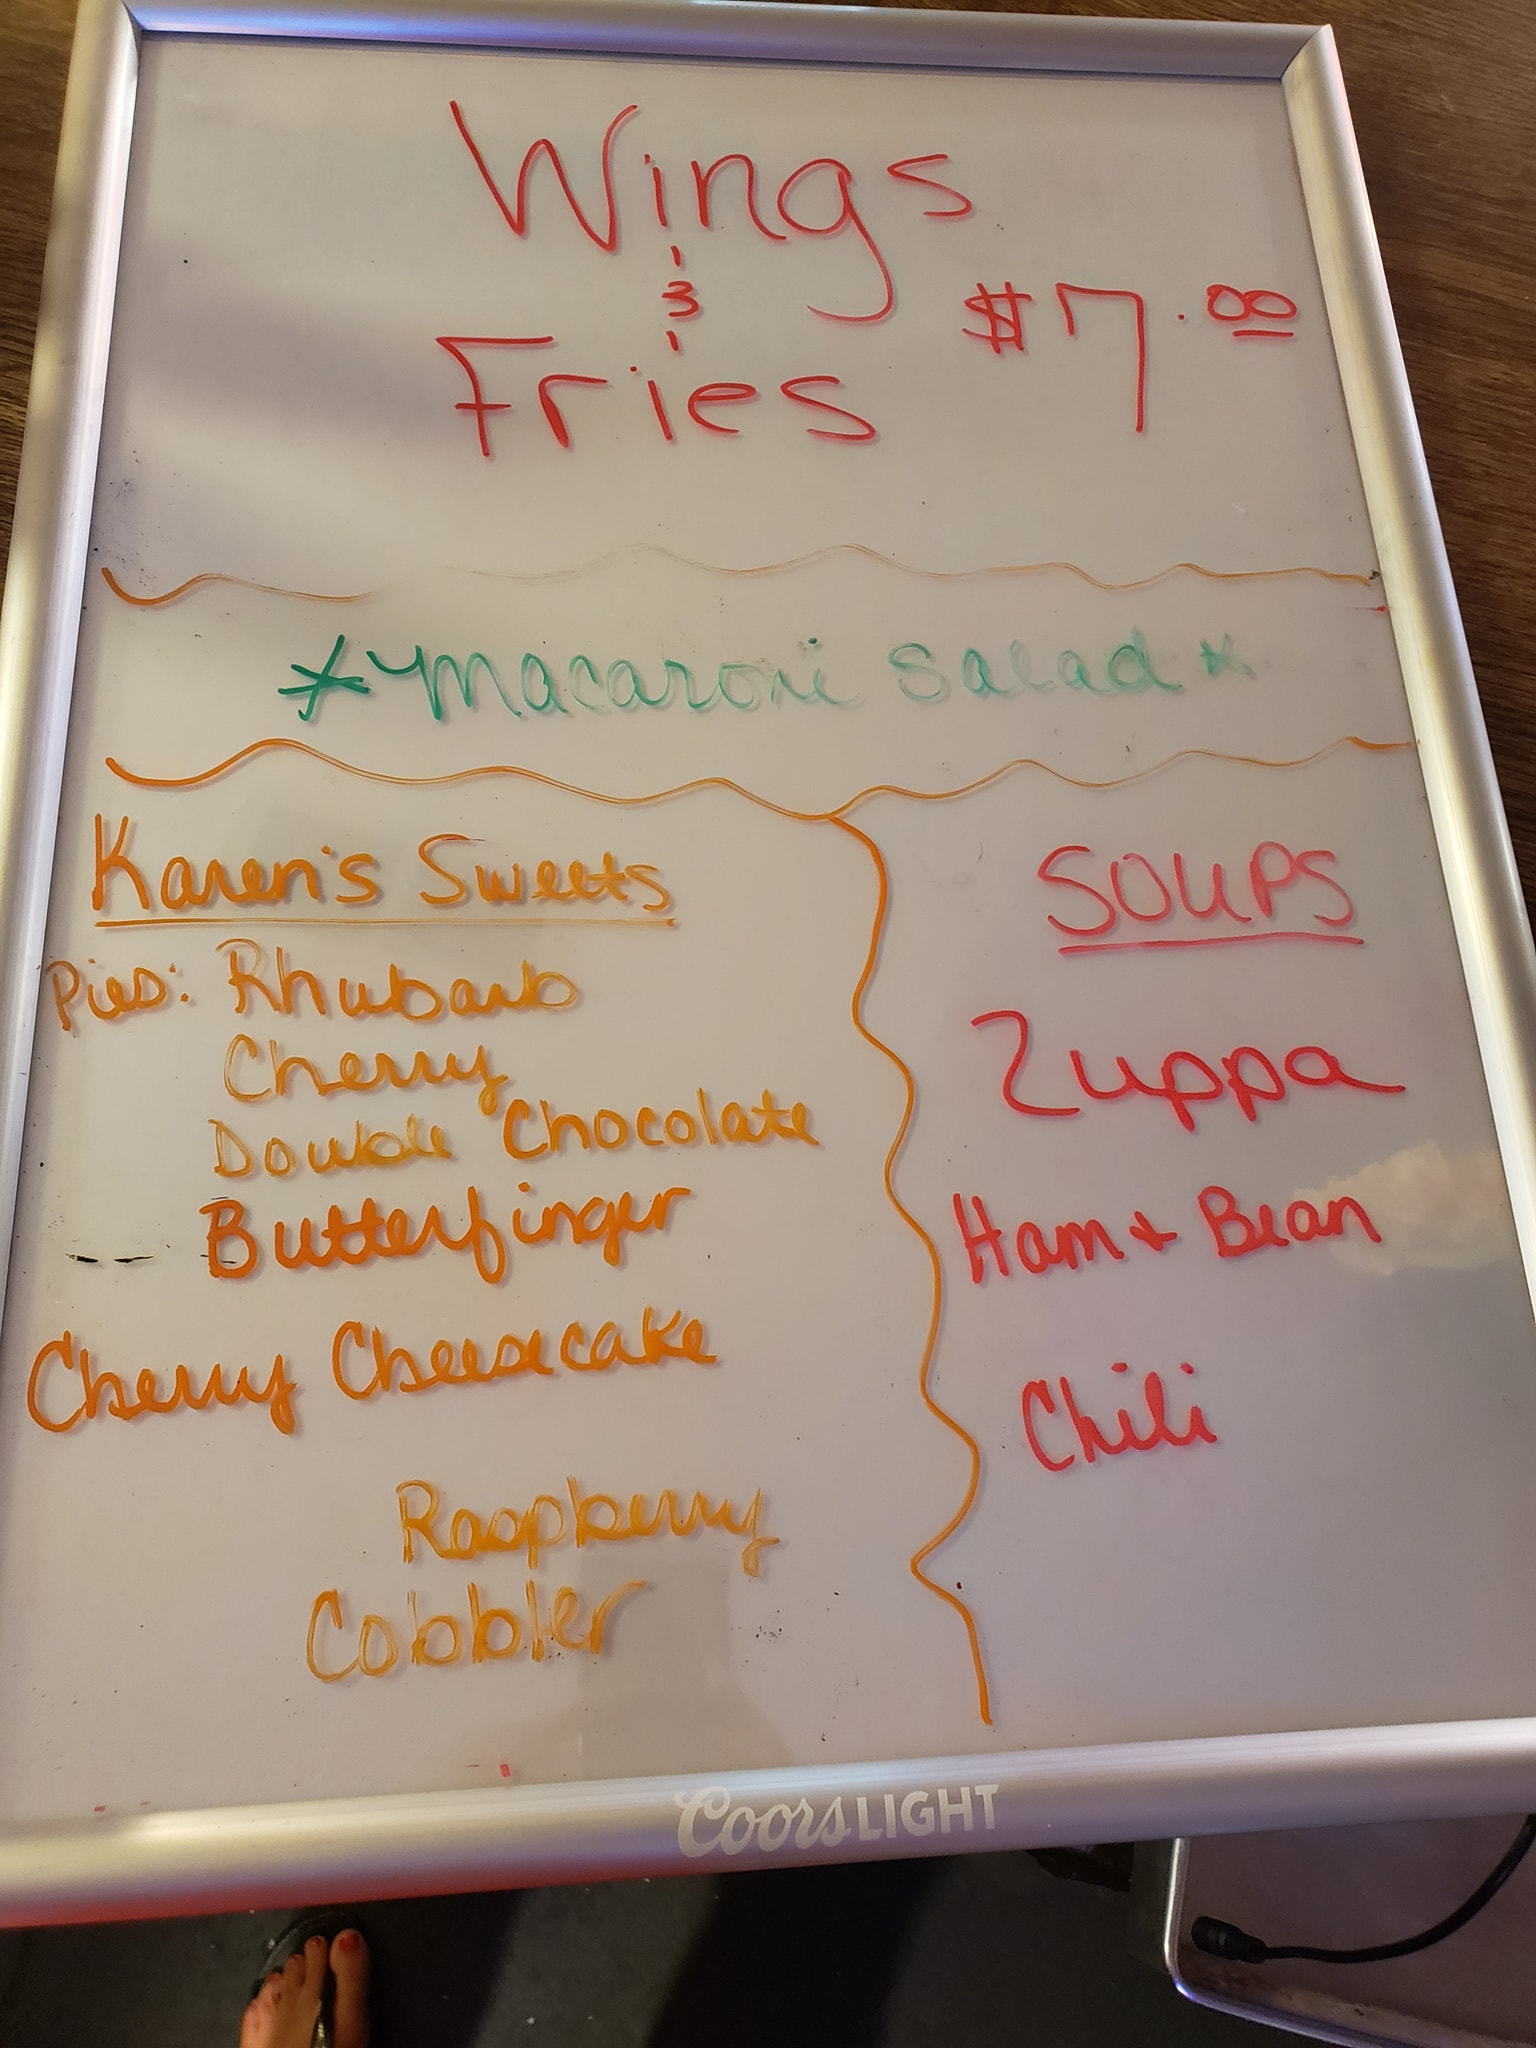 Wings
&
Fries $7.00
*Macaroni Salad*
Karen's Sweets
Pies: Rhubarb
Cherry
Double Chocolate
Butterfinger
Cherry Cheesecake
Raspberry
Cobbler
SOUPS
Zuppa
Ham + Bean
Chili
Coors LIGHT